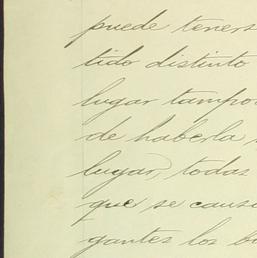 puede teners
tido distinto
lugar tampo
de haberla
lugar, todas
que se caus
gantes los b